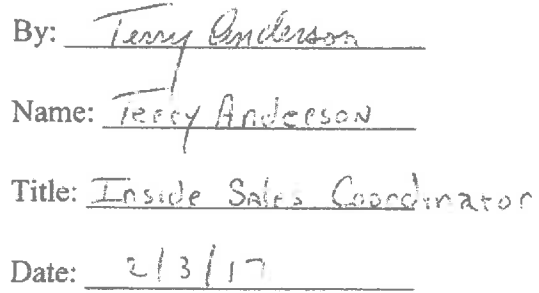 By: Terry Anderson
Name: Terry Anderson
Title: Inside Sales Coordinator
Date: 2/3/17